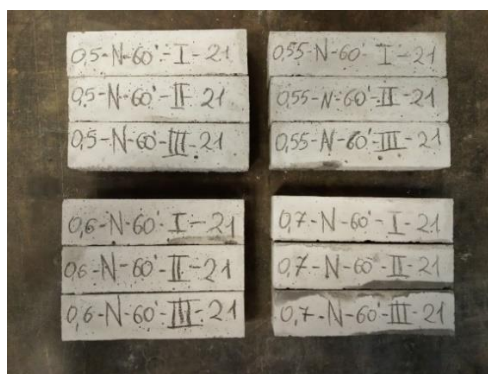 0,5-N-60'-I-21
0,5-N-60'-II-21
0,5-N-60'-III-21
0,55-N-60'-I-21
0,55-N-60'-II-21
0,55-N-60'-III-21
0,6-N-60'-I-21
0,6-N-60'-II-21
0,6-N-60'-III-21
0,7-N-60'-I-21
0,7-N-60'-II-21
0,7-N-60'-III-21